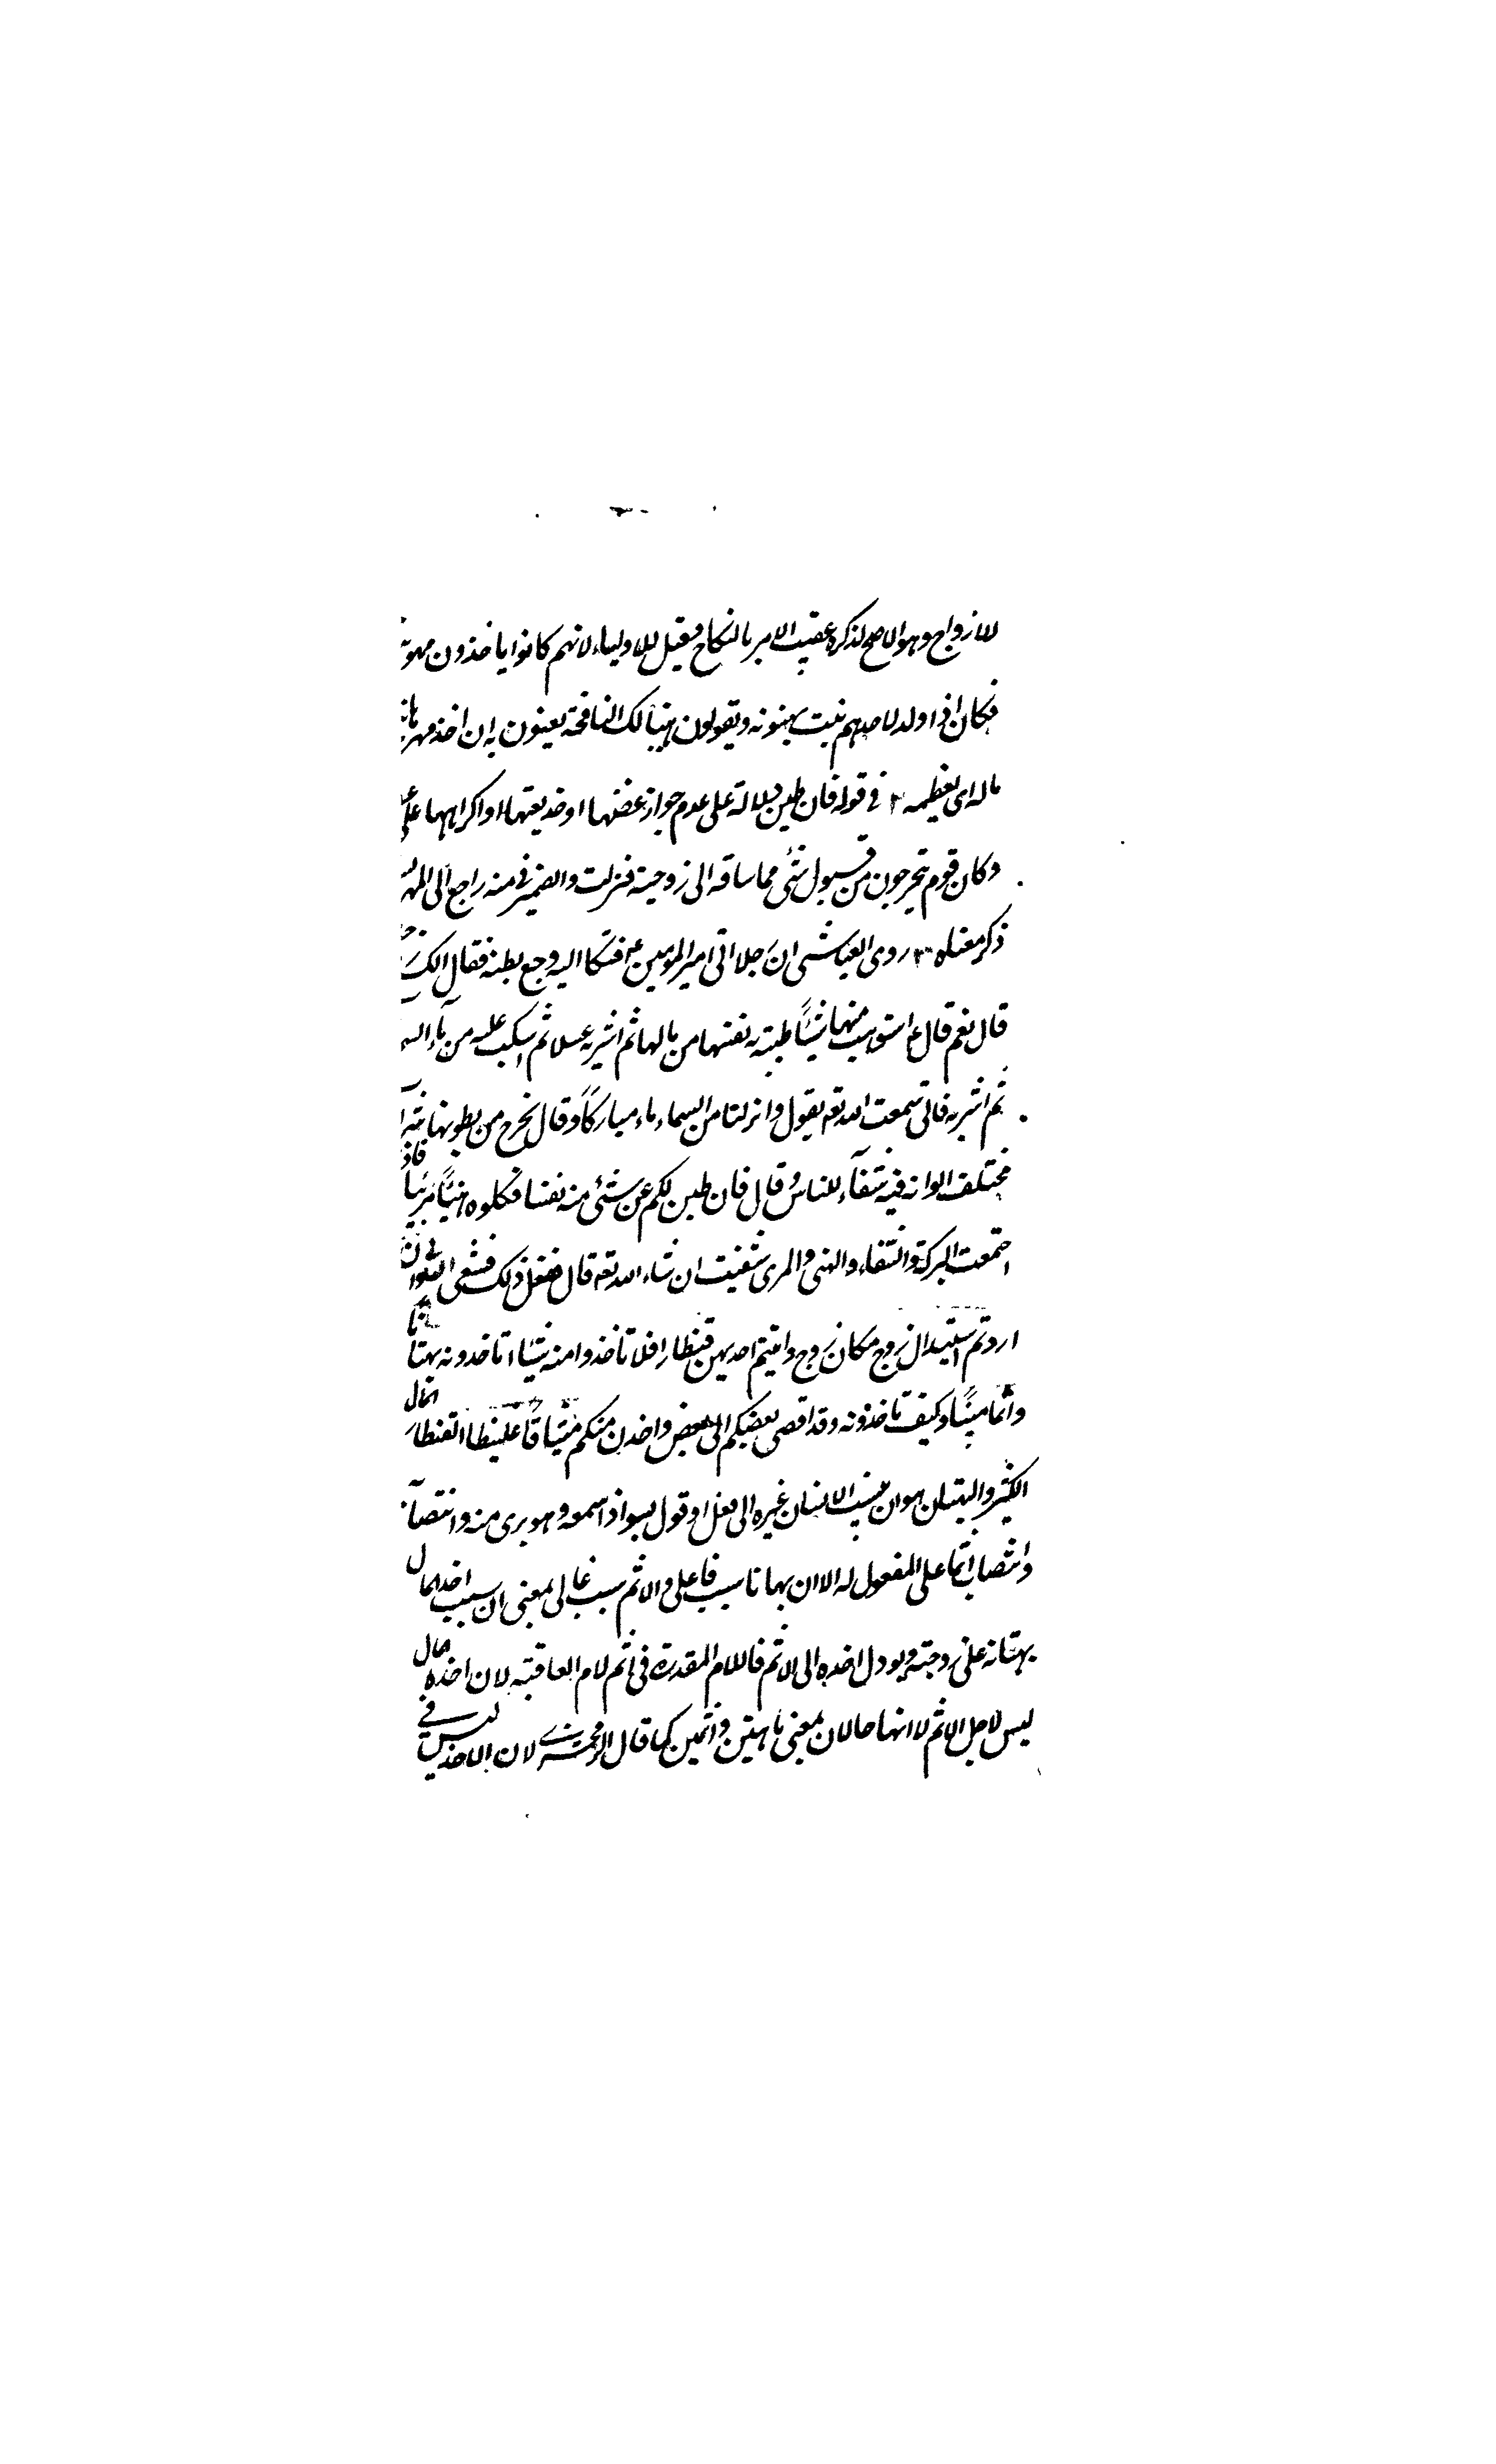 للازواج وهو الاصح لذكره عقيب الامر بالنكاح وقيل للاولياء لانهم كانوا ياخذون مهو
فكان اذا ولد لاحدهم بنت يهنونه ويقولون هنيأ لك النافجة يعينون به ان اخذ مهرها
ماله اى يعظمه ٢ في قوله فان طبن دلالة على عدم جواز عضلها او خديعتها او اكراهها على
وكان قوم يتحرجون من قبول شئ مما ساقه الى زوجيته فنزلت والضمير في منه راجع الى المهر
ذكر معناه ٣ روى العياشى ان رجلا اتى امير المؤمنين ع فشكا اليه وجع بطنه فقال الك
قال نعم قال ع استوهب منها شيئاً طيبته به نفسها من مالها ثم اشتر به عسلا ثم اسكب عليه من ماء السم
ثم اشربه فانى سمعت الله تعه يقول وانزلنا من السماء ماء مباركاً وقال يخرج من بطونها شرا
مختلف الوانه فيه شفآء للناس وقال فان طبن لكم عن شئى منه نفسا فكلوه هنيئاً مريئاً فاذ
اجتمعت البركة والشفاء والهنى والمرى شفيت ان شاء الله تعه قال ففعل ذلك فشفى
اردتم استبدال زوج مكان زوج واتيتم احديهن قنطارا فلا تاخذوا منه شيئا اتاخذونه بهتانا
واثما مبيناً وكيف تاخذونه وقد افضى بعضكم الى بعض واخذن منكم ميثاقاً غليظا القنطار المال
الكثير والبهتان هو ان ينسب الانسان غيره الى فعل او قول يسوء اذا سمعه وهو برى منه وانتصا
وانتصاب اثما على المفعول له الا ان بهتانا سبب فاعلى والاثم سبب غالى بمعنى ان سبب اخذ المال
بهتانه على زوجته ويودل اخذه الى الاثم فاللام المقدرة في اثم لام العاقبة لان اخذه المال
ليس لاجل الاثم لا انها حالان بمعنى باهتين واثمين كما قال الزمخشرے لان الاخذ ليس في